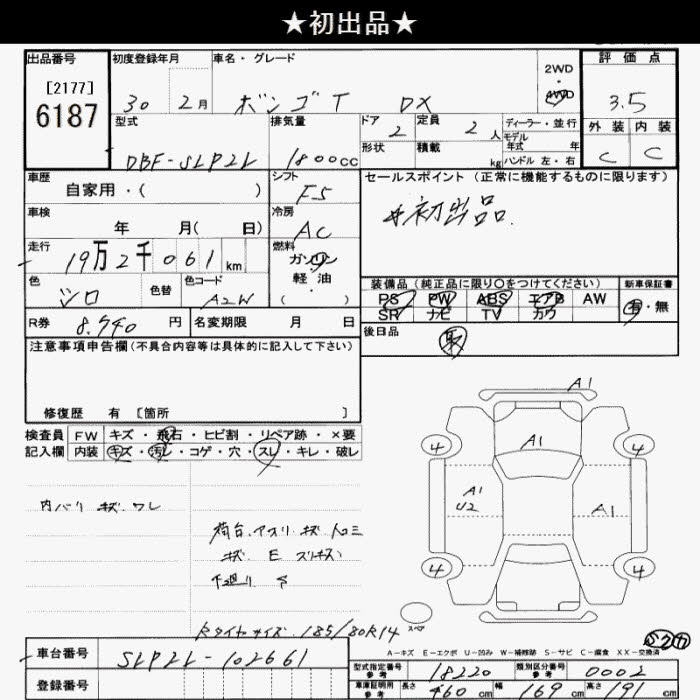 ★初出品★
出品番号 初度登録年月 車名・グレード 2WD・4WD 評価点
[2177] 6187 30 2月 ボンゴT DX 3.5
型式 排気量 ドア 2 定員 2人 ディーラー・並行 外装 内装
モデル年式 年
DBF-SLP2L 1800cc 形状 積載 kg ハンドル 左・右 C C
車歴 自家用・( ) シフト F5 セールスポイント(正常に機能するものに限ります)
車検 年 月( 日) 冷房 AC #初出品.
走行 19万2千061km 燃料 ガソリン
軽油・( )
色 シロ 色替 色コード A2W 装備品(純正品に限り○をつけてください) 新車保証書
PS PW ABS エアB AW 有・無
SR ナビ TV カワ
R券 8.740円 名変期限 月 日 後日品 取
注意事項申告欄(不具合内容等は具体的に記入して下さい)
修復歴 有 [箇所 ]
検査員記入欄 FW キズ・飛石・ヒビ割・リペア跡・×要
内装 キズ・汚レ・コゲ・穴・スレ・キレ・破レ
A1
4 A1 4
A1 U2 A1
4 4
内バリ キズ.ワレ
荷台.アオリ キズ
キズ E
下廻り S
スペア
タイヤサイズ.185/80R14
A-キズ E-エクボ U-凹み W-補修跡 S-サビ C-腐食 XX-交換済
車台番号 SLP2L-102661
登録番号
型式指定番号参考 18220 類別区分番号参考 0002
車庫証明用参考 長さ 460cm 幅 169cm 高さ 191cm